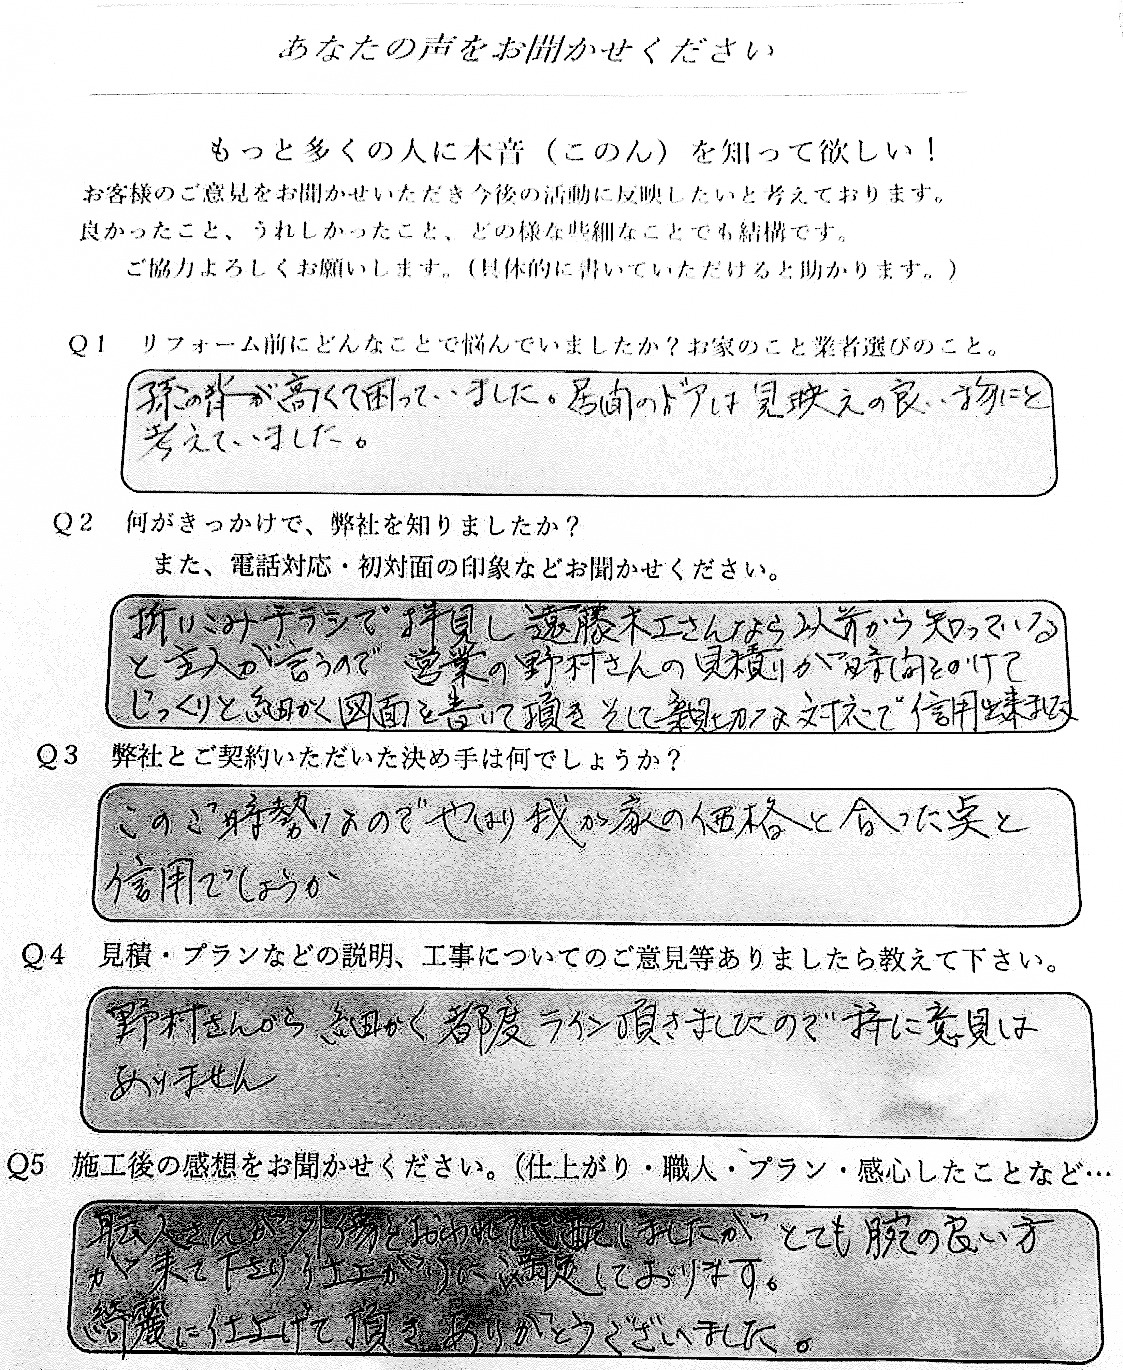 あなたの声をお聞かせください
もっと多くの人に木音（このん）を知って欲しい！
お客様のご意見をお聞かせいただき今後の活動に反映したいと考えております。
良かったこと、うれしかったこと、どの様な些細なことでも結構です。
ご協力よろしくお願いします。（具体的に書いていただけると助かります。）
Q1 リフォーム前にどんなことで悩んでいましたか？お家のこと業者選びのこと。
孫の背が高くて困っていました。居間のドアは見映えの良い物にと
考えていました。
Q2 何がきっかけで、弊社を知りましたか？
また、電話対応・初対面の印象などお聞かせください。
折りこみチラシで拝見し遠藤木工さんなら以前から知っている
と主人が言うので営業の野村さんの見積りが時間をかけて
じっくりと細かく図面を書いて頂きそして親切な対応で信用出来ました
Q3 弊社とご契約いただいた決め手は何でしょうか？
このご時勢なのでやはり我が家の価格と合った点と
信用でしょうか
Q4 見積・プランなどの説明、工事についてのご意見等ありましたら教えて下さい。
野村さんから細かく都度ライン頂きましたので特に意見は
ありません
Q5 施工後の感想をお聞かせください。（仕上がり・職人・プラン・感心したことなど…
職人さんが外傷をおわれて心配しましたがとても腕の良い方
が来て下さり仕上がりに満足しております。
綺麗に仕上げて頂きありがとうございました。